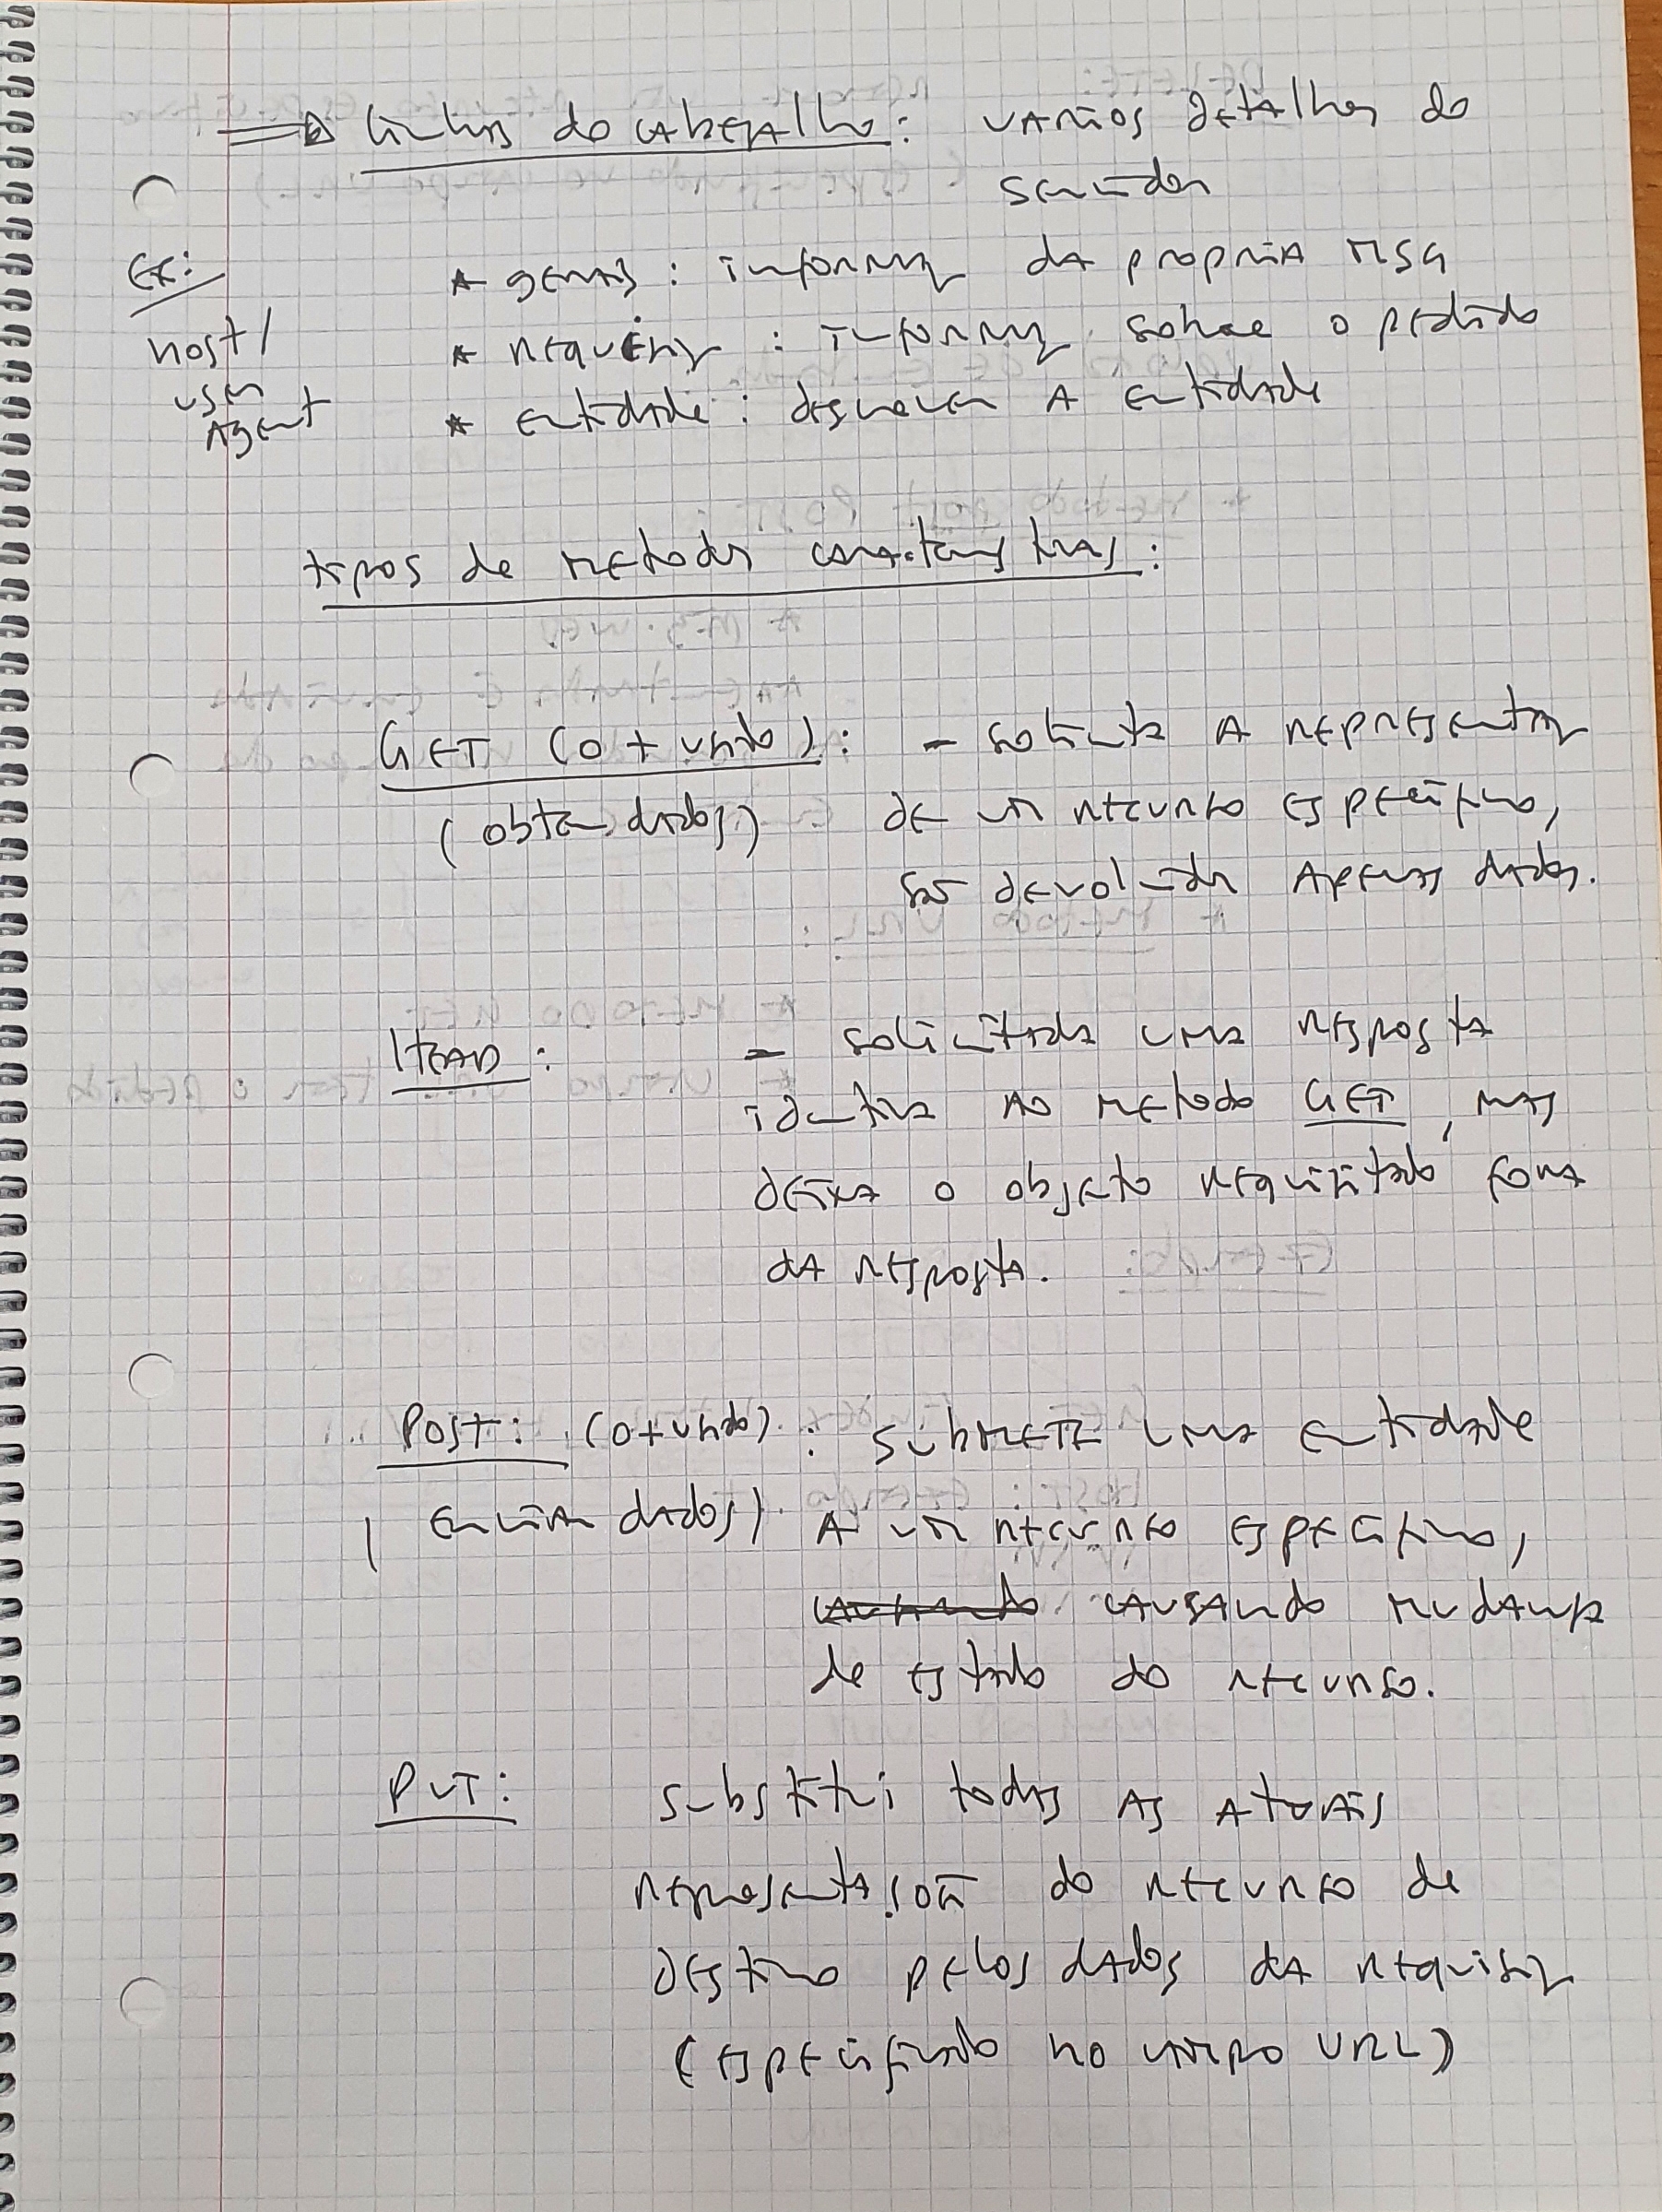 ⇒ linhas do cabeçalho: vários detalhes do
servidor
Ex:
host/
user
Agent
* gerais: informaç da propria MSG
* requisiç: informaç sobre o pedido
* entidade: descrever A entidade
tipos de metodos caracteristicas:
GET (o + usado): - solicita A representaç
(obter dados) de um recurso especifico,
são devolvidos Apenas dados.
HEAD: - solicitada uma resposta
identica Ao metodo GET, mas
deixa o objeto requisitado fora
da resposta.
Post: (o + usado): submete uma entidade
(enviar dados) A um recurso especifico,
causando mudança
de estado do recurso.
PUT: substitui todas As Atuais
representaçoẽ do recurso de
destino pelos dados da requisiç
(especificado no campo URL)